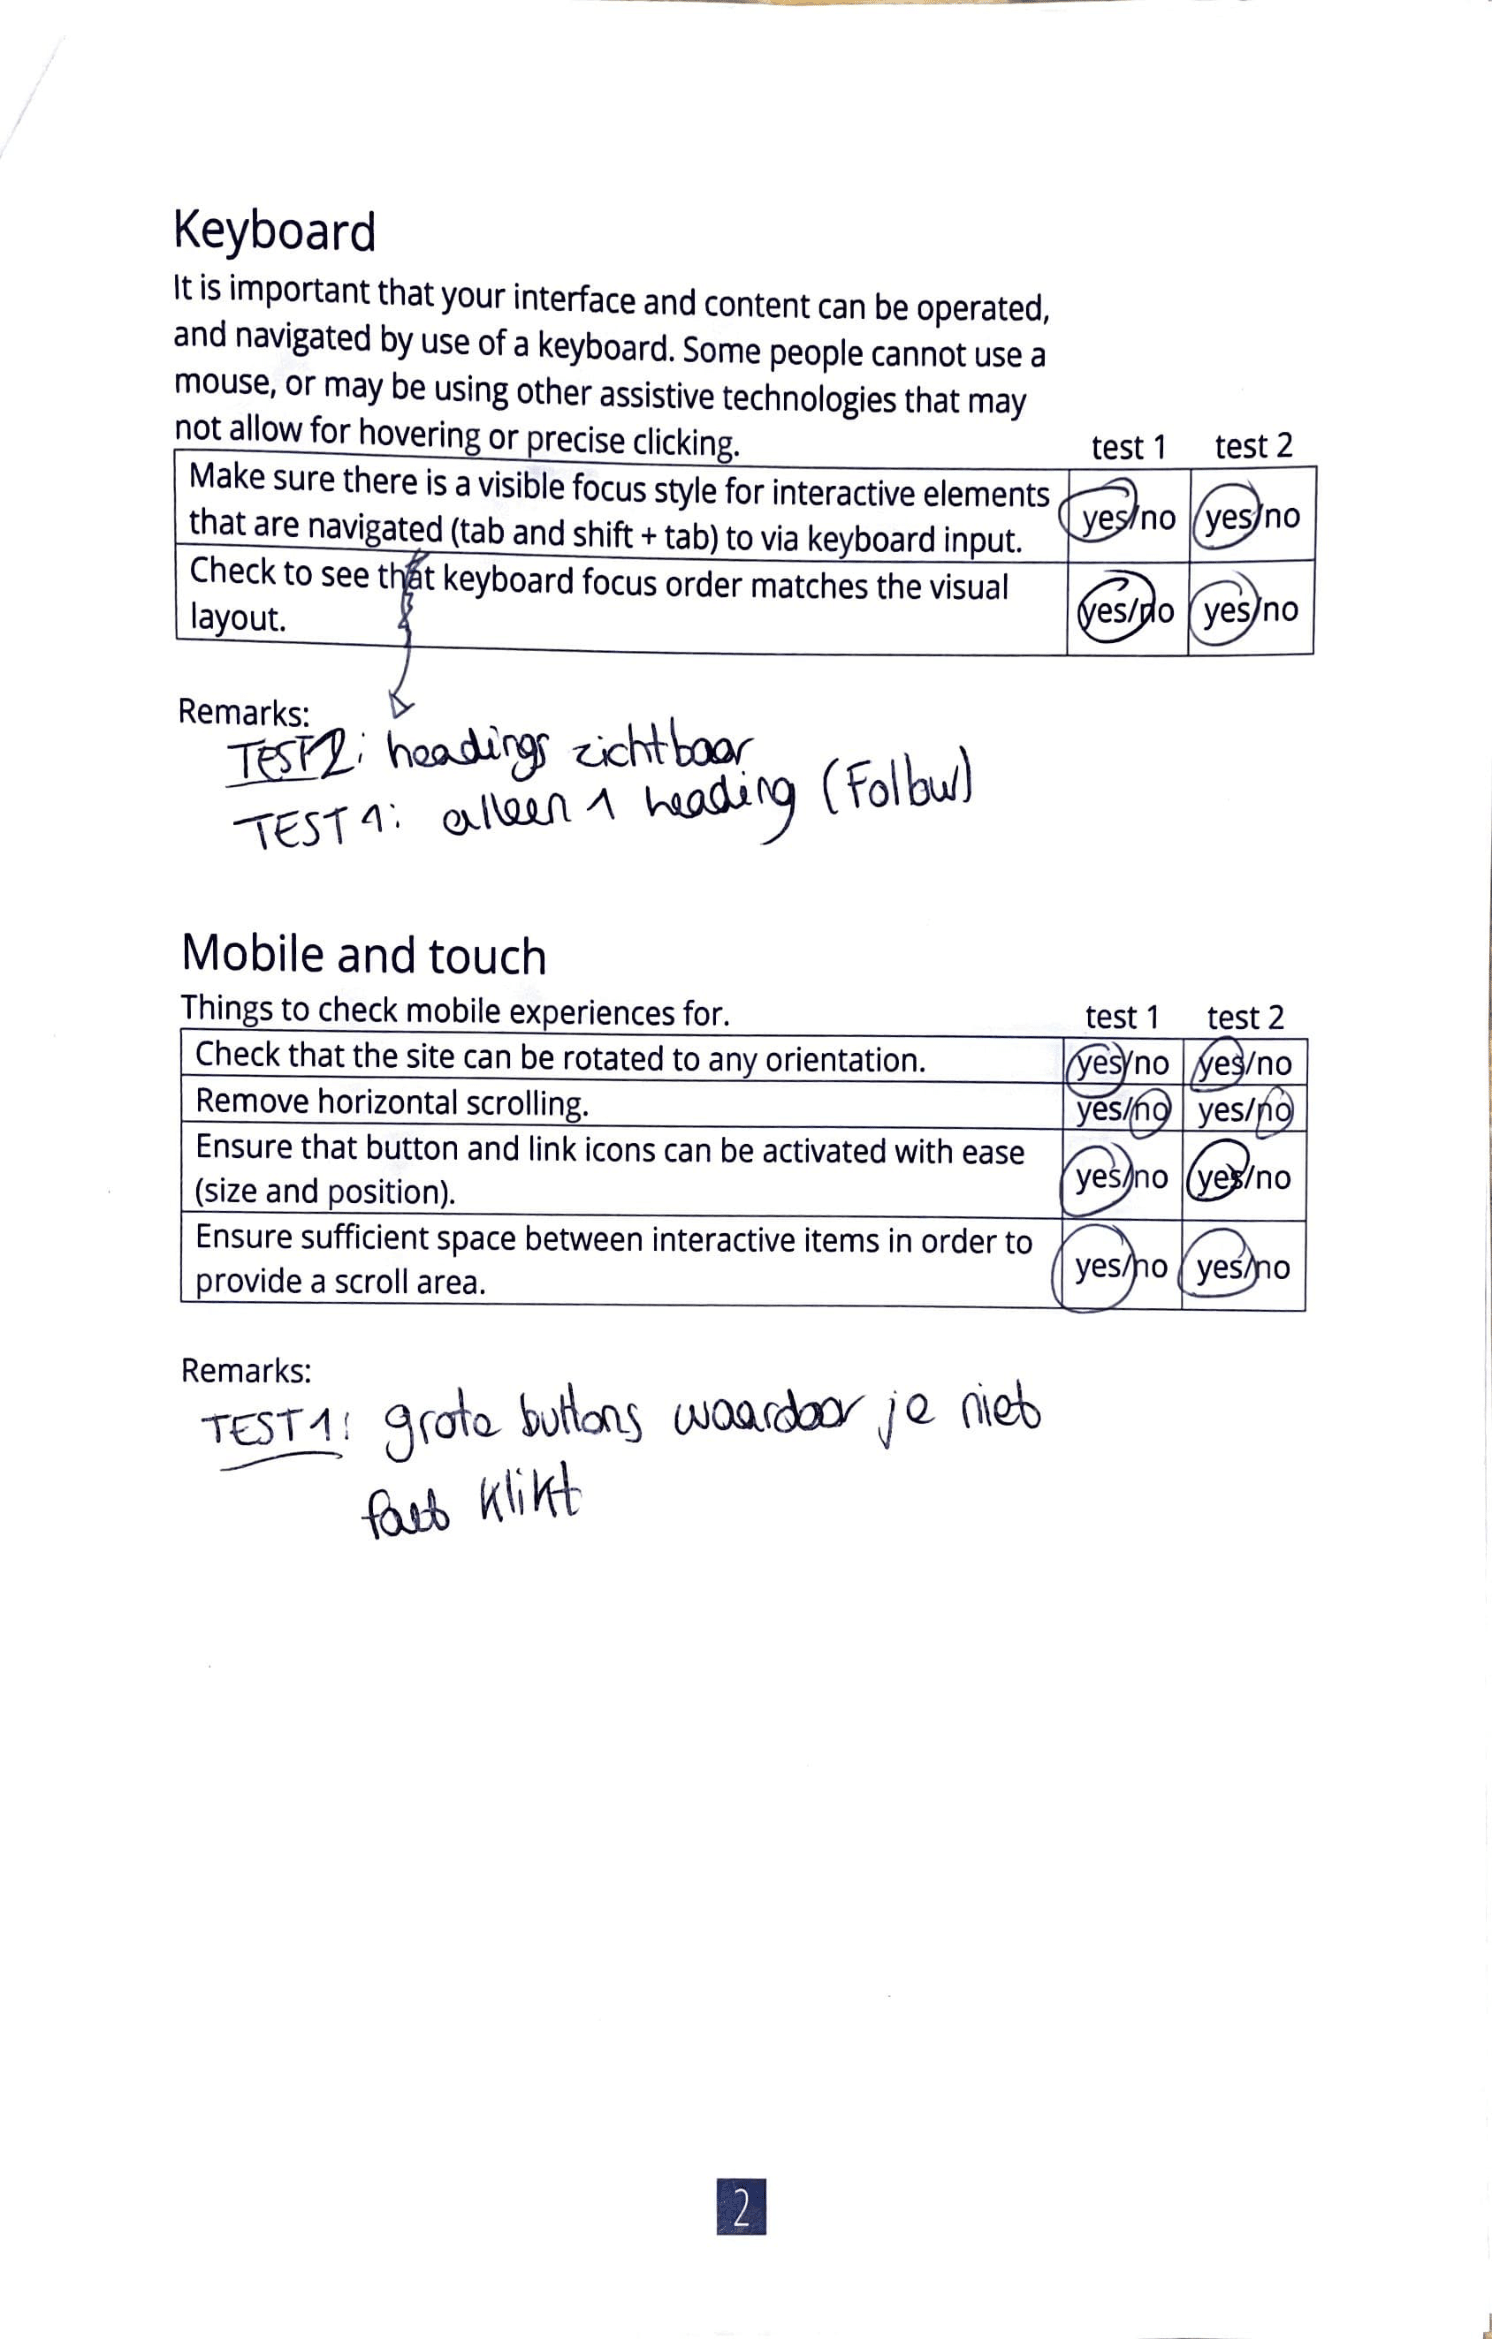 Keyboard
It is important that your interface and content can be operated,
and navigated by use of a keyboard. Some people cannot use a
mouse, or may be using other assistive technologies that may
not allow for hovering or precise clicking.
test 1 test 2
Make sure there is a visible focus style for interactive elements
that are navigated (tab and shift + tab) to via keyboard input.
yes/no yes/no
Check to see that keyboard focus order matches the visual
layout.
yes/no yes/no
Remarks:
TEST 2: headings zichtbaar
TEST 1: alleen 1 heading
Mobile and touch
Things to check mobile experiences for.
test 1 test 2
Check that the site can be rotated to any orientation. yes/no yes/no
Remove horizontal scrolling. yes/no yes/no
Ensure that button and link icons can be activated with ease
(size and position).
yes/no yes/no
Ensure sufficient space between interactive items in order to
provide a scroll area.
yes/no yes/no
Remarks:
TEST 1: grote buttons waardoor je niet
klikt
2